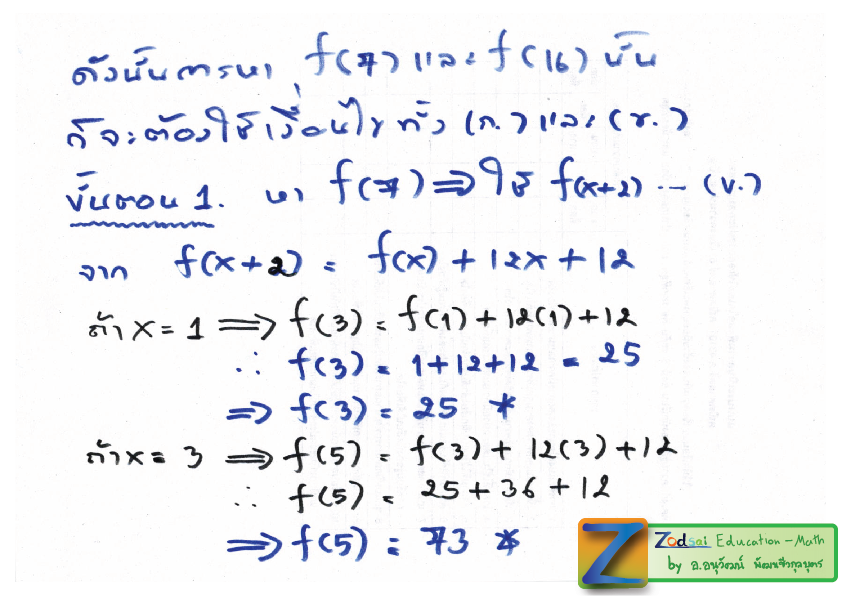 ดังนั้นการหา f(7) และ f(16) นั้น
ก็จะต้องใช้เงื่อนไขทั้ง (ก.) และ (ข.)
ขั้นตอน 1. หา f(7) ⇒ ใช้ f(x+2) --- (ข.)
จาก f(x+2) = f(x) + 12x + 12
ถ้า x = 1 ⇒ f(3) = f(1) + 12(1) + 12
∴ f(3) = 1+12+12 = 25
⇒ f(3) = 25 *
ถ้า x = 3 ⇒ f(5) = f(3) + 12(3) + 12
∴ f(5) = 25 + 36 + 12
⇒ f(5) = 73 *
Z Zodsai Education - Math
by อ.อนุวัฒน์ พัฒนชีวกุลบุตร